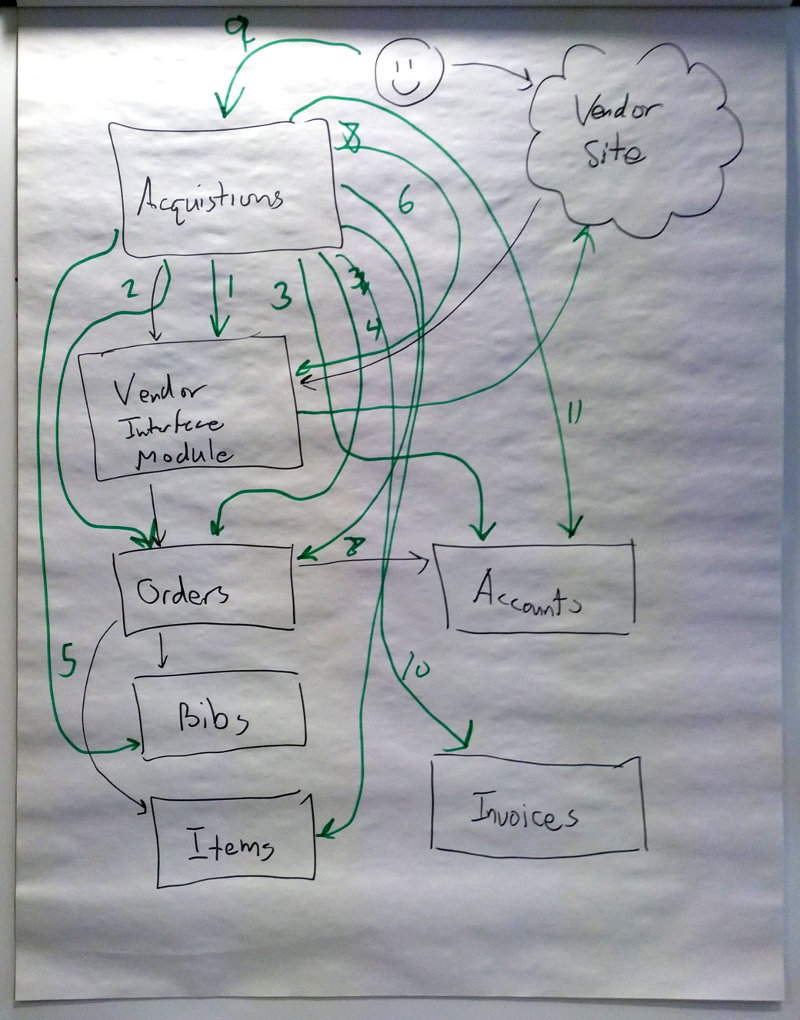 9
Vendor
Site
Acquistions
8
6
2
1
3
4
Vendor
Interface
Module
11
8
Orders
Accounts
5
10
Bibs
Invoices
Items